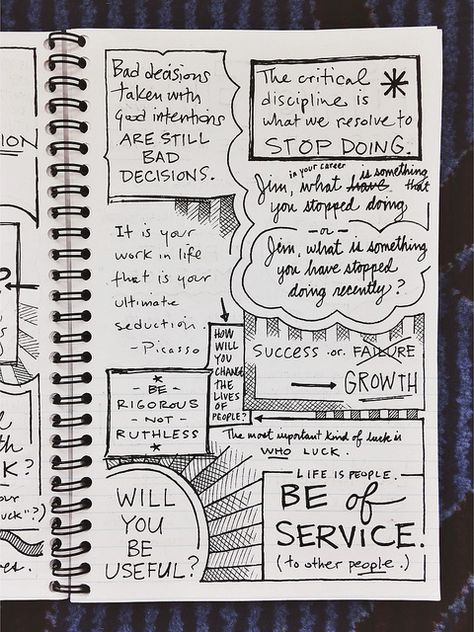 ION
?
K?
uck"?)
Bad decisions
taken with
good intentions
ARE STILL
BAD
DECISIONS.
The critical
discipline is
what we resolve to
STOP DOING.
*
in your career
Jim, what have is something that
you stopped doing
- or -
Jim, what is something
you have stopped
doing recently?
It is your
work in life
that is your
ultimate
seduction.
- Picasso
HOW
WILL
YOU
CHANGE
THE
LIVES
OF
PEOPLE?
SUCCESS or FAILURE
GROWTH
- BE -
RIGOROUS
- NOT -
RUTHLESS
*
The most important kind of luck is
WHO LUCK.
WILL
YOU
BE
USEFUL?
LIFE IS PEOPLE.
BE of
SERVICE.
(to other people.)